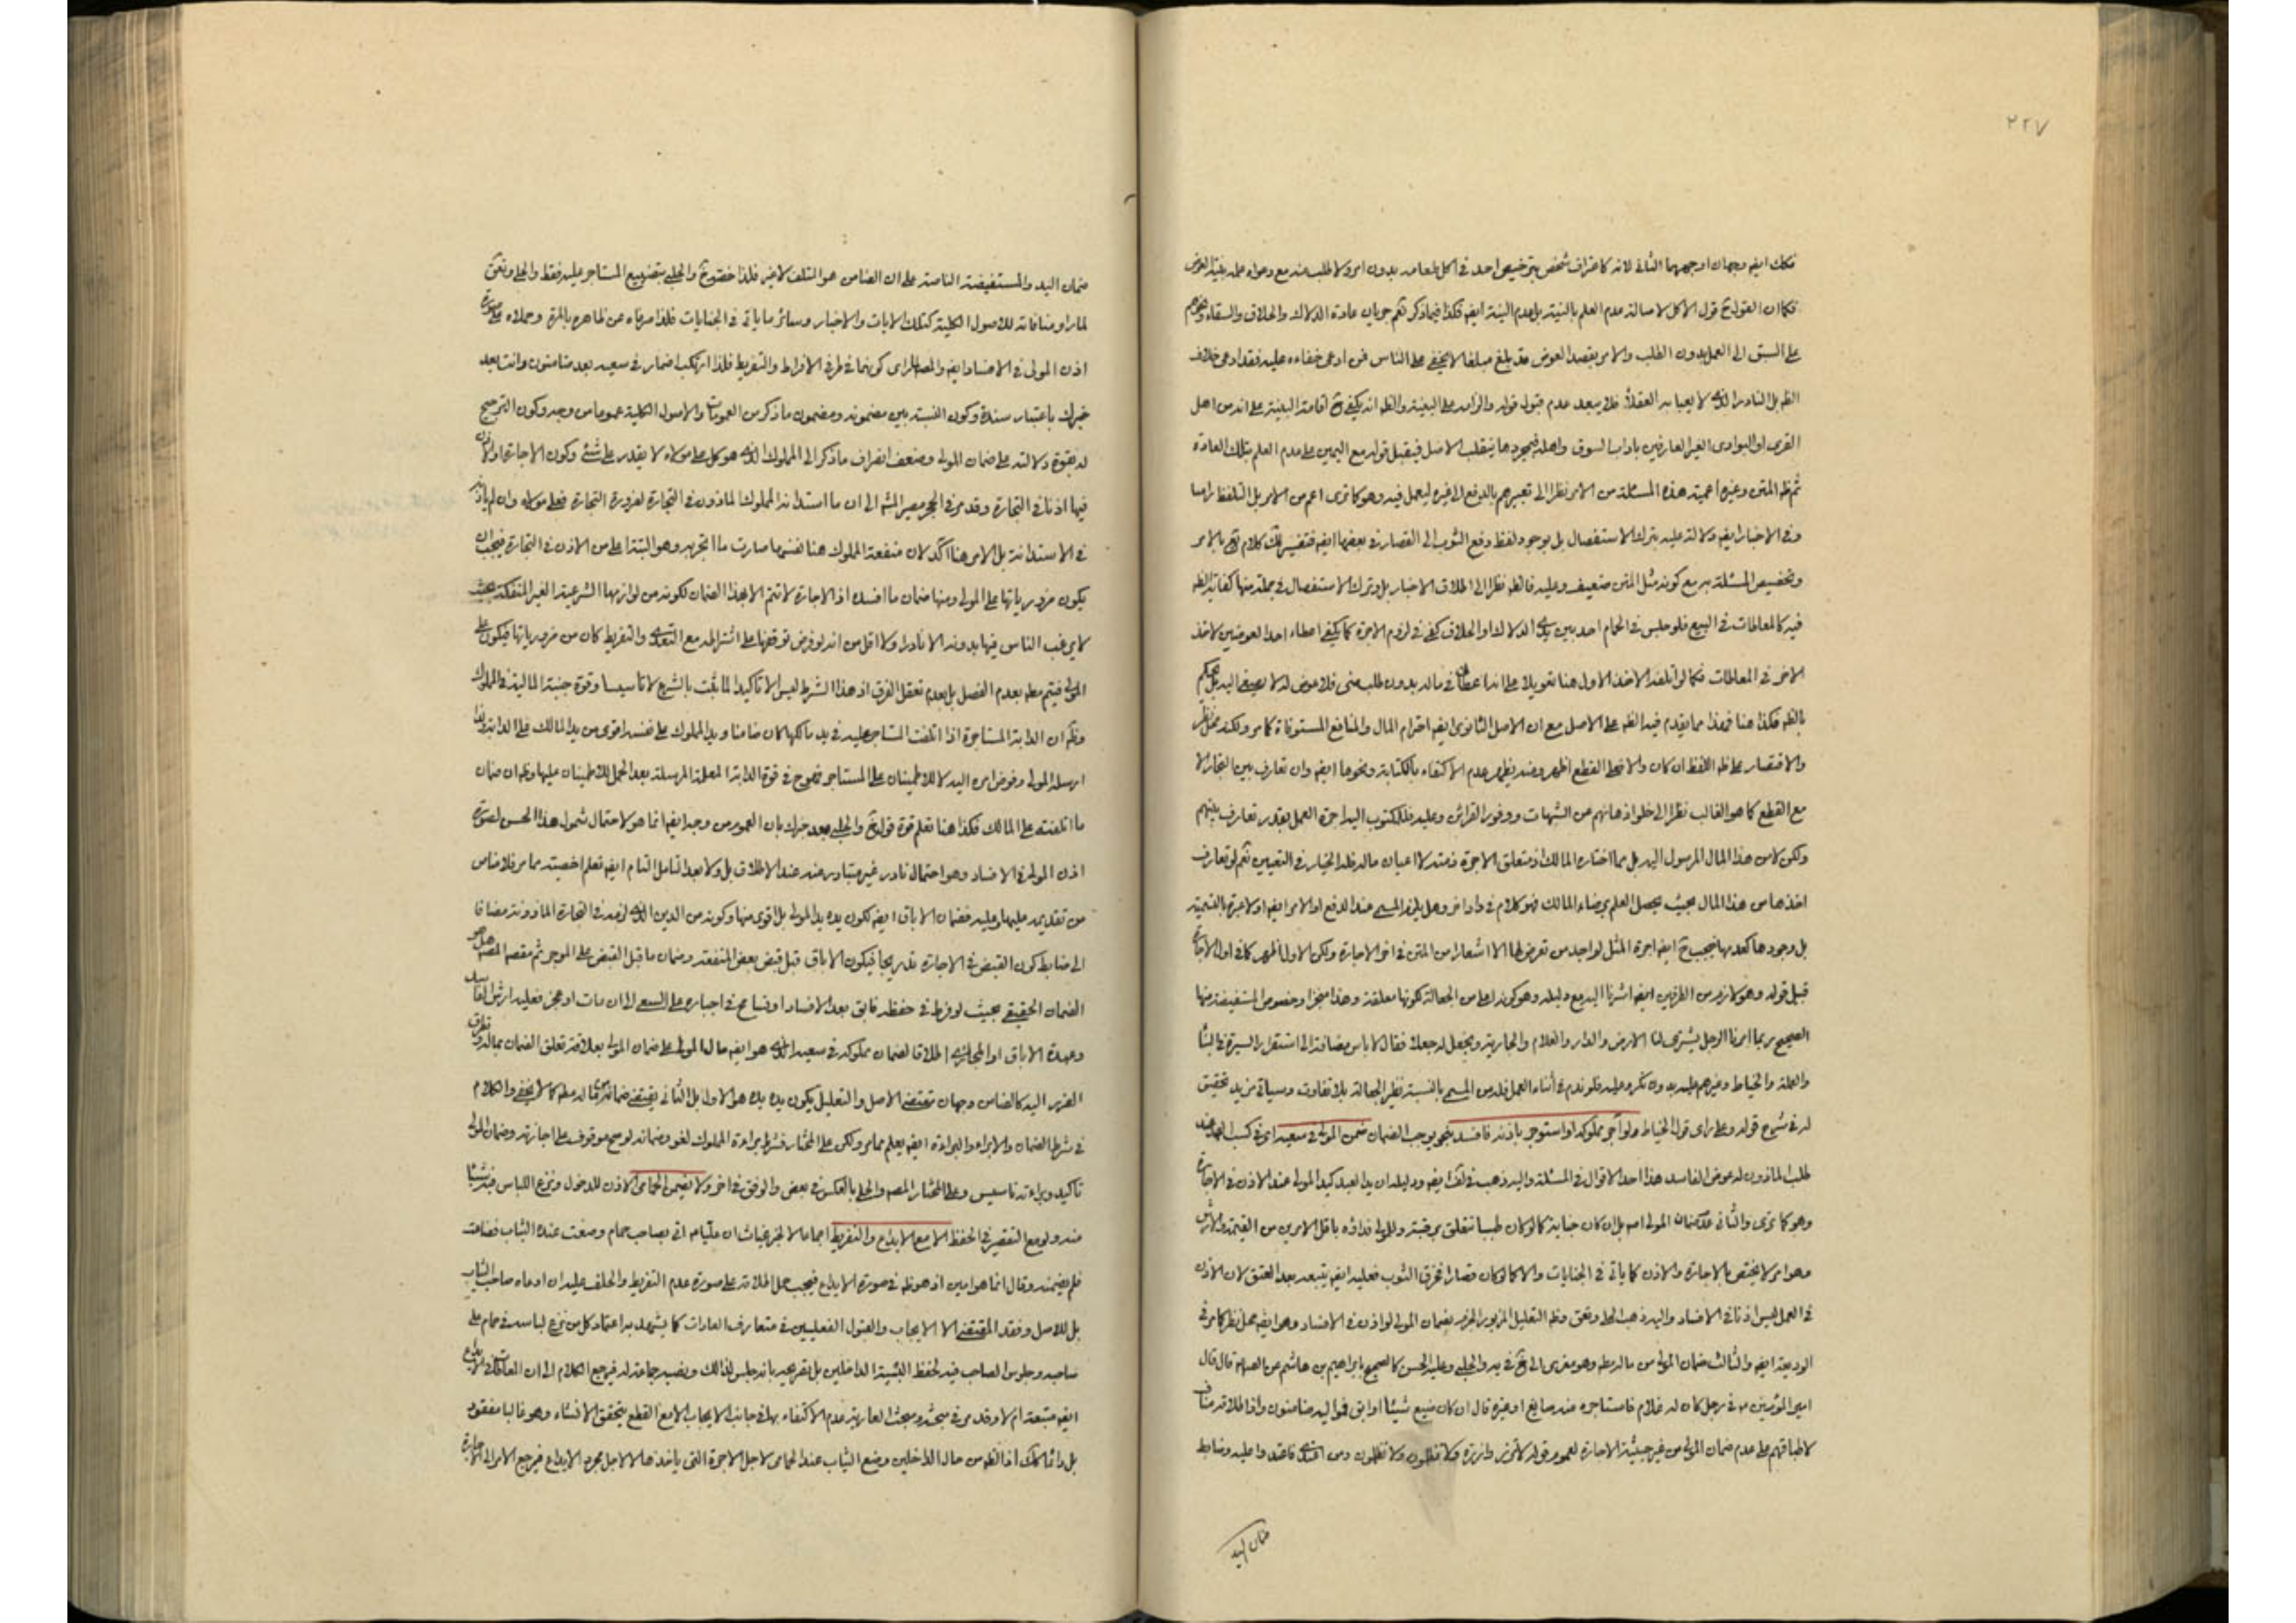 ٢٢٧
فكك ايضه وجهان اوجههما الثانى لانه كاعتراف شخص بترخيص احد فى اكل طعامه بدون امر ولا طلب منه مع دعواه عليه بنية العوض
فكما ان القول ح قول الاكل لاصالة عدم العلم بالنية بل عدم النية ايضه فكذا فيما ذكر نعم جريان عادة الدلاك والحلاق والسقاء وغيرهم
على السبق الى العمل بدون الطلب والامر بقصد العوض قد بلغ مبلغا لا يخفى على الناس فمن ادعى خفاءه عليه فقد ادعى خلاف
الظه بل النادر الذى لا يعبأ به العقلاء فلا يبعد عدم قبول قوله والزامه على البينة والظه انه يكفى ح اقامة البينة على انه من اهل
القرى او البوادى الغير العارفين باداب السوق واهله فبمجردها ينقلب الاصل فيقبل قوله مع اليمين على عدم العلم بتلك العادة
ثم ظه المتن وغيره اعمية هذه المسئلة من الامر نظرا الى تعبيرهم بالدفع الى غيره ليعمل فيه وهو كما ترى اعم من الامر بل التلفظ راسا
وفى الاخبار ايضه دلالة عليه بترك الاستفصال بل بوجود لفظ دفع الثوب الى القصار فى بعضها ايضه فتفسير لك كلام بالامر
وتخصيص المسئلة به مع كونه مثل المتن ضعيف وعليه فالظه نظرا الى اطلاق الاخبار بل وترك الاستفصال فى جملة منها كفاية الظه
فيه كالمعاطات فى البيع فلو جلس فى الحمام احد بين يدى الدلاك او الحلاق كفى فى لزوم الاجرة كما يكفى اعطاء احد العوضين لاخذ
الاخر فى المعاطات فكما لو اتلفه الاخذ الاول هنا تعويلا على انه اعطانى ماله بدون طلب منى فلا عوض له لا يصغى اليه بل يحكم
بالظه فكذا هنا فهذا مما يقدم فيه الظه على الاصل مع ان الاصل الثانوى ايضه احترام المال والمنافع المستوفاة كما مر ولكنه محل نظر
والاقتصار على ظه اللفظ ان كان والا فعلى القطع اظهر ومنه يظهر عدم الاكتفاء بالكتابة ونحوها ايضه وان تعارف بين التجار الا
مع القطع كما هو الغالب نظرا الى خلو اذهانهم عن الشبهات ووفور القرائن وعليه فللمكتوب اليه اجرة العمل بقدر تعارف بينهم
ولكن لا من هذا المال المرسول اليه بل مما اختاره المالك اذ متعلق الاجرة ذمته لا اعيان ماله فله الخيار فى التعيين نعم لو تعارف
اخذها من هذا المال بحيث يحصل العلم برضاء المالك فهو كلام فى واد اخر وهل يلزم المسمى عند الدفع او الامر ايضه او لا عبرة بالتسمية
بل وجودها كعدمها فيجب ح ايضه اجرة المثل لم اجد من تعرض لها الا اشعارا من المتن فى اخر الاجارة ولكن الاول اظهر كما فى اول الاجارة
قبل قوله وهو لازم من الطرفين ايضه اشرنا اليه مع دليله وهو كونه اعلى من الجعالة لكونها معلقة وهذا منجزا وخصوص المستفيضة منها
الصحيح ربما امرنا الرجل يشترى لنا الارض والدار والغلام والجارية ونجعل له جعلا فقال لا باس مضافا الى استقرار السيرة فى البناء
والعملة والخياط وغيرهم عليه بدون نكير وعليه فلو ندم فى اثناء العمل فله من المسمى بالنسبة نظير الجعالة بلا تفاوت وسياتى مزيد تحقيق
له فى شرح قوله وعلى راى قول الخياط ولو آجر مملوكه او استوجر باذنه فافسد بنحو يوجب الضمان ضمن المولى فى سعيه اى فى كسب العبد
طلب الماذون له عوض الفاسد هذا احد الاقوال فى المسئلة واليه ذهب فى لك ايضه ودليله ان يد العبد كيد المولى عند الاذن فى الاجارة
وهو كما ترى والثانى عدم ضمان المولى اصه بل ان كان جناية كما لو كان طبيبا تتعلق برقبته وللمولى فداؤه باقل الامرين من القيمة والارش
وهو امر لا يختص بالاجارة والاذن كما ياتى فى الجنايات والا كما لو كان قصارا فخرق الثوب فعليه ايضه يتبعه بعد العتق لان الاذن
فى العمل ليس اذنا فى الافساد واليه ذهب الحلى وتعق وظه التعليل المزبور الجزم بضمان المولى لو اذن فى الافساد وهو ايضه محل نظر كما مر فى
الوديعة ايضه والثالث ضمان المولى من ماله مطه وهو معزى الى يخ فى يه والحلبى وعليه الحسن كالصحيح بابراهيم بن هاشم عن الصه قال قال
امير المؤمنين فى رجل كان له غلام فاستاجره منه صايغ او غيره قال ان كان ضيع شيئا او ابق فمواليه ضامنون واذا طلاقه مناف
لاطباقهم على عدم ضمان المولى من غير جهة الاجارة لعموم قوله لا تزر وازرة ولا تظلمون ولا تظلمون ومن اعتدى فاعتدوا عليه وضابط
ضمان اليد
ضمان اليد والمستفيضة الناصة على ان الضامن هو المتلف لا غير فلذا خصه يخ والحلبى بتضييع المستاجر عليه فقط والحلى وتعق
لما راو منافاته للاصول الكلية كتلك الايات والاخبار وسائر ما ياتى فى الجنايات فلذا صرفاه عن ظاهره بالمرة وحملاه على صورة
اذن المولى فى الافساد ايضه والمصه لما راى كونهما فى طرفى الافراط والتفريط فلذا ارتكب اضمار فى سعيه بعد ضامنون وانت بعد
خبرك باعتبار سنده وكون النسبة بين مضمونه ومضمون ما ذكر من العمومات والاصول الكلية عموما من وجه وكون الترجيح
له بقوة دلالته على ضمان المولى وضعف انصراف ما ذكر الى المملوك الذى هو كل على مولاه لا يقدر على شئ وكون الاجارة او الاذن
فيها اذنا فى التجارة وقد مر فى الحجر مصير المشه الى ان ما استدانه المملوك الماذون فى التجارة لضرورة التجارة فعلى مولاه وان لم ياذنه
فى الاستدانة بل الامر هنا اكد لان منفعة المملوك هنا نفسها صارت ما اتجر به وهو البتة اعلى من الاذن فى التجارة فيجب ان
يكون ضرورياتها على المولى ومنها ضمان ما افسده اذ الاجارة لا تتم الا بهذا الضمان لكونه من لوازمها الشرعية الغير المنفكة بحيث
لا يرغب الناس فيها بدونه الا نادرا ولا اقل من انه لو فرض توقفها على اشتراطه مع التعدى والتفريط كان من ضرورياتها فيكون على
المولى فيتم مطه بعدم الفصل بل بعدم تعقل الفرق اذ هذا الشرط ليس الا تاكيدا لما ثبت بالشرع لا تاسيسا وقوة جنبة المالية فى المملوك
وظه ان الدابة المستاجرة اذا اتلفت المستاجر عليه فى يد مالكها كان ضامنا ويد المملوك على نفسه اقوى من يد المالك على الدابة اذا
ارسله المولى وفوض امره اليه لا للاطمينان على المستاجر فهو ح فى قوة الدابة المعلمة المرسلة بعد الحمل للاطمينان عليها وظه ان ضمان
ما اتلفته على المالك فكذا هنا تعلم قوة قول يخ والحلبى بعد خبرك بان العموم من وجه ايضه انما هو لاحتمال شمول هذا الحسن لصورة
اذن المولى فى الافساد وهو احتمال نادر غير متبادر منه عند الاطلاق بل ولا بعد التامل التام ايضه تعلم اخصيته مما مر فلا مناص
من تقديمه عليها وعليه فضمان الاباق ايضه لكون يده يد المولى بل اقوى منها وكونه من الدين الذى لزمه فى التجارة الماذونة مضافا
الى ضابط كون القبض فى الاجارة تدريجا فيكون الاباق قبل قبض بعض المنفعة وضمان ما قبل القبض على الموجر ثم مقصه المصه هل هو
الضمان الحقيقى بحيث لو فرط فى حفظه فابق بعد الافساد او تسامح فى اجباره على السعى الى ان مات او عجز فعليه ارش الفاسد
وعهدة الاباق او المجازى اطلاقا لضمان مملوكه فى سعيه الذى هو ايضه مال المولى على ضمان المولى بعلاقة تعلق الضمان بماله وتطرق
الضرر اليه كالضامن وجهان مقتضى الاصل والتعليل بكون يده يده هو الاول بل الثانى يقتضى ضمانه من ماله مطه كما لا يخفى والكلام
فى شرط الضمان والابراء والبراءة ايضه يعلم مما مر ولكن على المختار فشرط براءة المملوك لغو وضمانه لو صح موقوف على اجازته وضمان المولى
تاكيد وبراءته تاسيس وعلى المختار المصه والحلى بالعكس فى بعض والوفق فى اخر ولا يضمن الحمامى الاذن للدخول ونزع اللباس فيه شيئا
منه ولو مع التقصير فى الحفظ الا مع الايداع والتفريط اجماعا لا لخبر غياث ان عليا ع اتى بصاحب حمام وضعت عنده الثياب فضاعت
فلم يضمنه وقال انما هو امين اذ هو ظه فى صورة الايداع فيجب حمل اطلاقه على صورة عدم التفريط والحلف عليه ان ادعاه صاحب الثياب
بل للاصل وفقد المقتضى الا الايجاب والقبول الفعليين فى متعارف العادات كما يشهد به اعتماد كل من نزع لباسه فى حمام على
صاحبه وجلوس الصاحب فيه لحفظ البسة الداخلين بل تصريحه بانه جلس لذلك ونصبه جماعة له فيرجع الكلام الى ان العادة فى الايداع
ايضه متبعة ام لا وقد مر فى مبحثه ومبحث العارية عدم الاكتفاء بها فى جانب الايجاب الا مع القطع بتحقق الانشاء وهو غالبا مفقود
بل دائما اذ الظه من حال الداخلين وضع الثياب عند الحمامى لاجل الاجرة التى ياخذها لا لاجل مجرد الايداع فيرجع الامر الى الاجارة